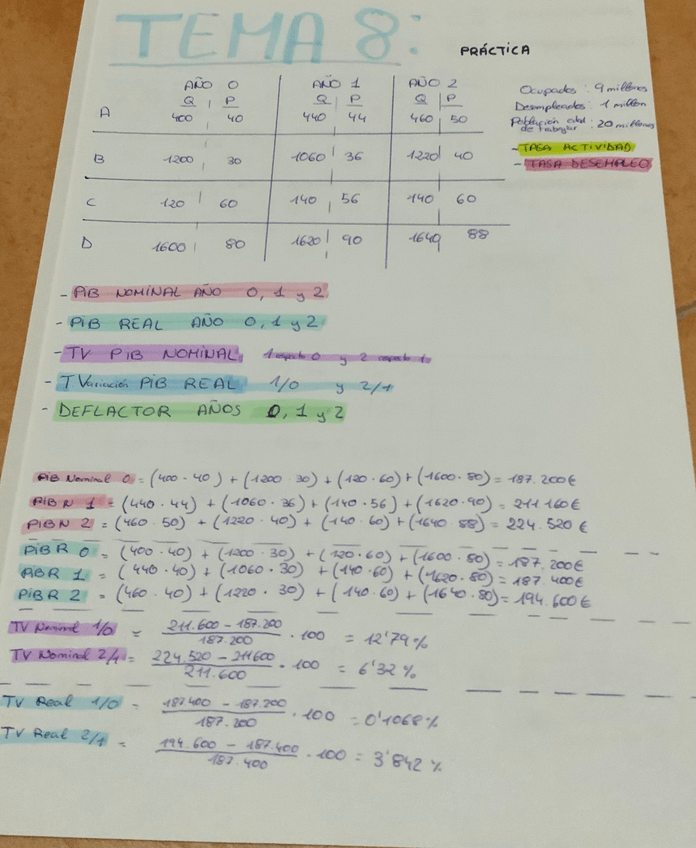 TEMA 8:
PRÁCTICA
AÑO 0 AÑO 1 AÑO 2
Q P Q P Q P
A 400 40 440 44 460 50
B 1200 30 1060 36 1220 40
C 120 60 140 56 140 60
D 1600 80 1620 90 1640 88
Ocupados: 9 millones
Desempleados: 1 millón
Población edad de trabajar: 20 millones
- TASA ACTIVIDAD
- TASA DESEMPLEO
- PIB NOMINAL AÑO 0, 1 y 2
- PIB REAL AÑO 0, 1 y 2
- TV PIB NOMINAL 1 respecto 0 y 2 respecto 1
- TVariación PIB REAL 1/0 y 2/1
- DEFLACTOR AÑOS 0, 1 y 2
PIB Nominal 0 = (400 · 40) + (1200 · 30) + (120 · 60) + (1600 · 80) = 187.200€
PIB N 1 = (440 · 44) + (1060 · 36) + (140 · 56) + (1620 · 90) = 211.160€
PIBN 2 = (460 · 50) + (1220 · 40) + (140 · 60) + (1640 88) = 224.520€
PIBR 0 = (400 · 40) + (1200 · 30) + (120 · 60) + (1600 · 80) = 187.200€
PIBR 1 = (440 · 40) + (1060 · 30) + (140 · 60) + (1620 · 80) = 187.400€
PIBR 2 = (460 · 40) + (1220 · 30) + (140 · 60) + (1640 · 80) = 194.600€
TV Nominal 1/0 = 211.600 - 187.200 / 187.200 · 100 = 12'79%
TV Nominal 2/1 = 224.520 - 211600 / 211.600 · 100 = 6'32%
TV Real 1/0 = 187400 - 187.200 / 187.200 · 100 = 0'1068%
TV Real 2/1 = 194.600 - 187.400 / 187.400 · 100 = 3'842%